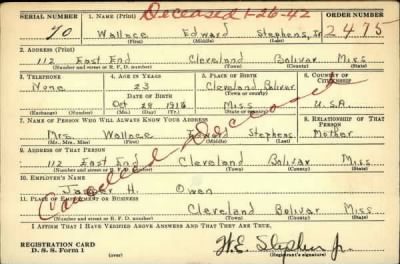 SERIAL NUMBER 1. NAME (Print) Deceased 1-26-42 ORDER NUMBER
70 Wallace Edward Stephens, Jr 2475
(First) (Middle) (Last)
2. ADDRESS (Print)
112 East End Cleveland Bolivar Miss
(Number and street or R. F. D. number) (Town) (County) (State)
3. TELEPHONE 4. AGE IN YEARS 5. PLACE OF BIRTH 6. COUNTRY OF CITIZENSHIP
None 23 Cleveland Bolivar
DATE OF BIRTH (Town or county)
Oct 28 Miss U.S.A.
(Exchange) (Number) (Mo.) (Day) (Yr.) (State or country)
7. NAME OF PERSON WHO WILL ALWAYS KNOW YOUR ADDRESS 8. RELATIONSHIP OF THAT PERSON
Mrs. Wallace Edward Stephens Mother
(Mr., Mrs., Miss) (First) (Middle) (Last)
9. ADDRESS OF THAT PERSON
112 East End Cleveland Bolivar Miss
(Number and street or R. F. D. number) (Town) (County) (State)
Cancelled Deceased
10. EMPLOYER'S NAME
H. Owen
11. PLACE OF EMPLOYMENT OR BUSINESS
Cleveland Bolivar Miss
(Number and street or R. F. D. number) (Town) (County) (State)
I AFFIRM THAT I HAVE VERIFIED ABOVE ANSWERS AND THAT THEY ARE TRUE.
REGISTRATION CARD
D. S. S. Form 1 W.E. Stephens Jr.
(over) (Registrant's signature)